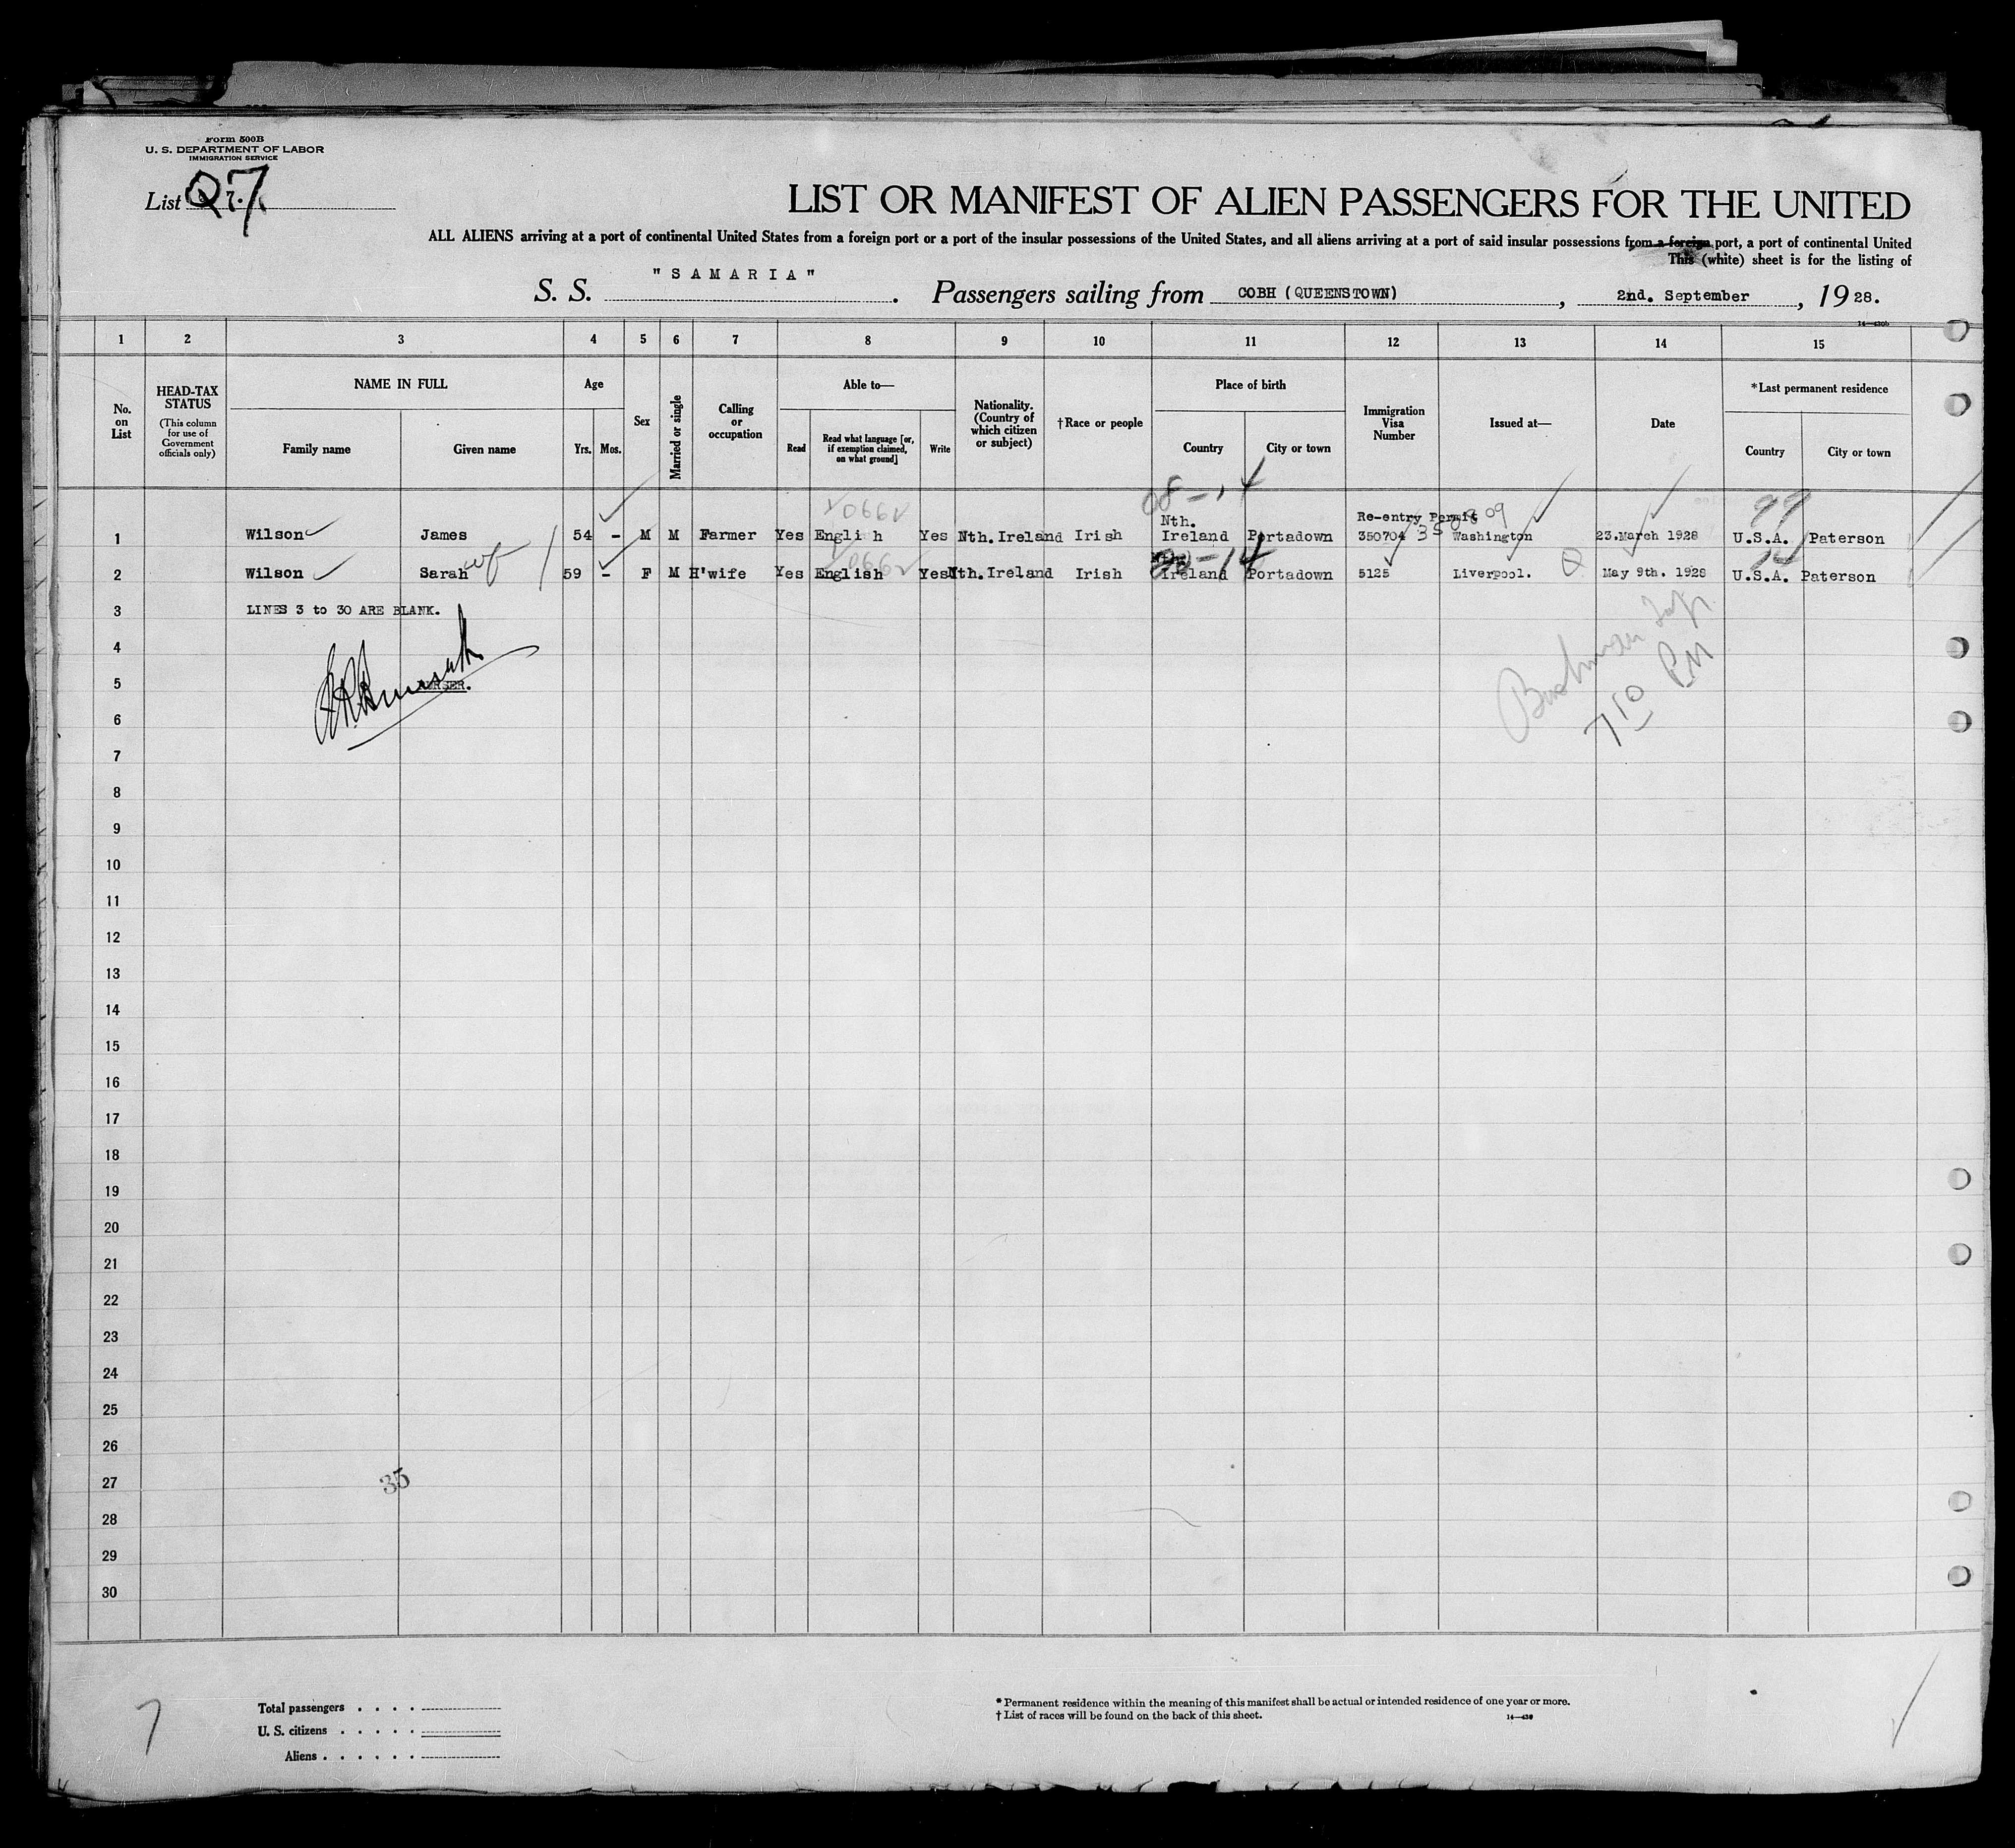 Form 500B
U. S. DEPARTMENT OF LABOR
IMMIGRATION SERVICE
List Q7 7.
LIST OR MANIFEST OF ALIEN PASSENGERS FOR THE UNITED
ALL ALIENS arriving at a port of continental United States from a foreign port or a port of the insular possessions of the United States, and all aliens arriving at a port of said insular possessions from a foreign port, a port of continental United
This (white) sheet is for the listing of
S. S. "SAMARIA". Passengers sailing from COBH (QUEENSTOWN), 2nd. September, 1928.
1 2 3 4 5 6 7 8 9 10 11 12 13 14 15
No. on List
HEAD-TAX STATUS
(This column for use of Government officials only)
NAME IN FULL
Family name Given name
Age
Yrs. Mos.
Sex
Married or single
Calling or occupation
Able to—
Read
Read what language [or, if exemption claimed, on what ground]
Write
Nationality. (Country of which citizen or subject)
†Race or people
Place of birth
Country City or town
Immigration Visa Number
Issued at—
Date
*Last permanent residence
Country City or town
08-14
0990
99
Re-entry Permit
1 Wilson James 54 - M M Farmer Yes Engli h Yes Nth. Ireland Irish Nth. Ireland Portadown 350704 Washington 23.March 1928 U.S.A. Paterson
0990
-14
14
2 Wilson Sarah wf 59 - F M H'wife Yes English Yes Nth. Ireland Irish Ireland Portadown 5125 Liverpool. May 9th. 1928 U.S.A. Paterson
3 LINES 3 to 30 ARE BLANK.
4
5 PURSER.
6
7 10 PM
7
8
9
10
11
12
13
14
15
16
17
18
19
20
21
22
23
24
25
26
27
35
28
29
30
7
Total passengers . . . .
U. S. citizens . . . . .
Aliens . . . . . .
* Permanent residence within the meaning of this manifest shall be actual or intended residence of one year or more.
† List of races will be found on the back of this sheet.
14—430